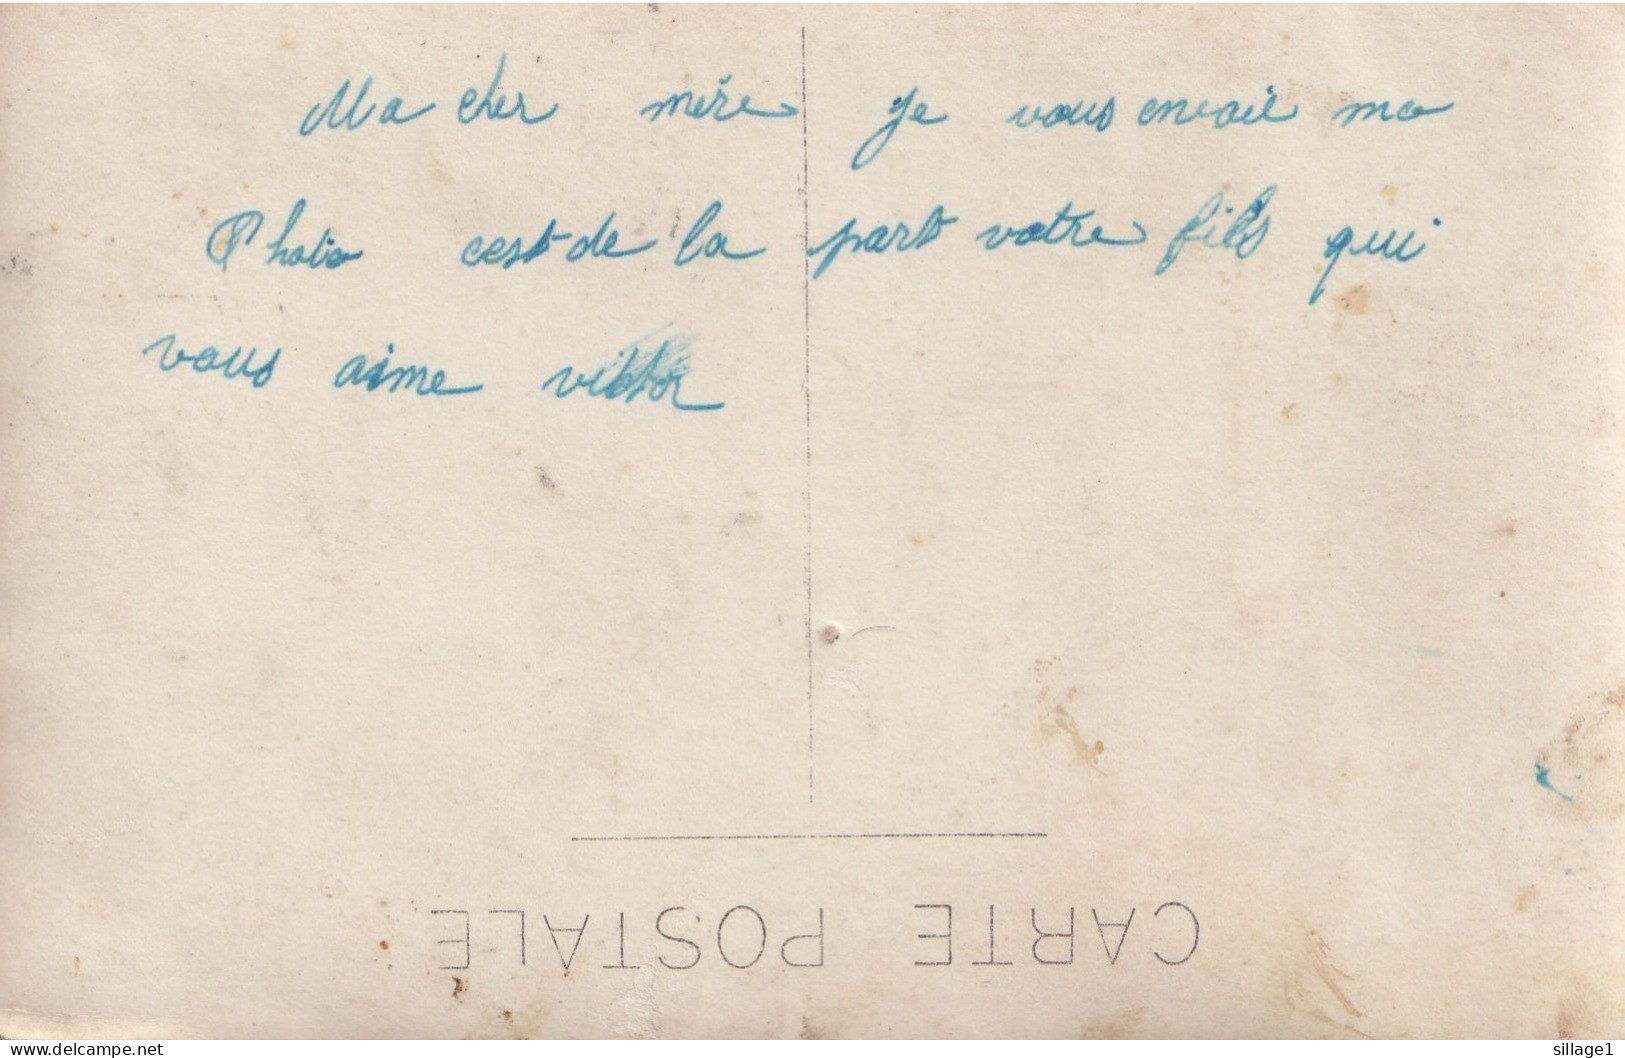 Ma cher mère je vous envoie ma
Photo cest de la part votre fils qui
vous aime viktor
CARTE POSTALE
delcampe.net
sillage1